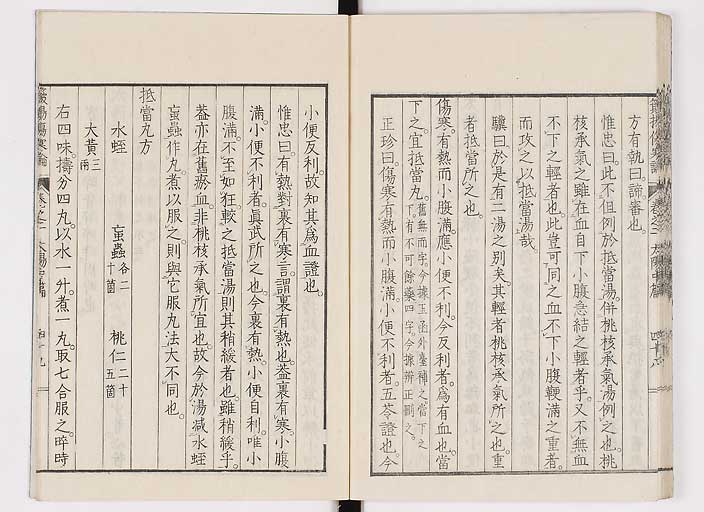 方有執曰諦審也
惟忠曰此不但例於抵當湯。併桃核承氣湯例之也。桃
核承氣之雖在血自下小腹急結之輕者乎。又不無血
不下之輕者也。此豈可同之血不下小腹鞕滿之重者。
而攻之以抵當湯哉。
驥曰於是有二湯之別矣。其輕者桃核承氣所之也。重
者抵當所之也。
傷寒。有熱而小腹滿。應小便不利。今反利者。爲有血也。當
下之。宜抵當丸。舊無而字。今據玉函外臺補之。當下之
下。有不可餘藥四字。今據辨正刪之。
正珍曰。傷寒有熱而小腹滿。小便不利者。五苓證也。今
小便反利。故知其爲血證也。
惟忠曰。有熱對裏有寒言。謂裏有熱也。蓋裏有寒。小腹
滿。小便不利者。眞武所之也。今裏有熱。小便自利。唯小
腹滿。不至如狂。較之抵當湯則其稍緩者也。雖稍緩乎。
蓋亦在舊瘀血。非桃核承氣所宜也。故今於湯減水蛭
䖟蟲作丸。煮以服之。則與它服丸法大不同也。
抵當丸方
水蛭 䖟蟲各二十箇 桃仁二十五箇
大黃三兩
右四味。擣分四丸。以水一升。煮一丸。取七合服之。晬時